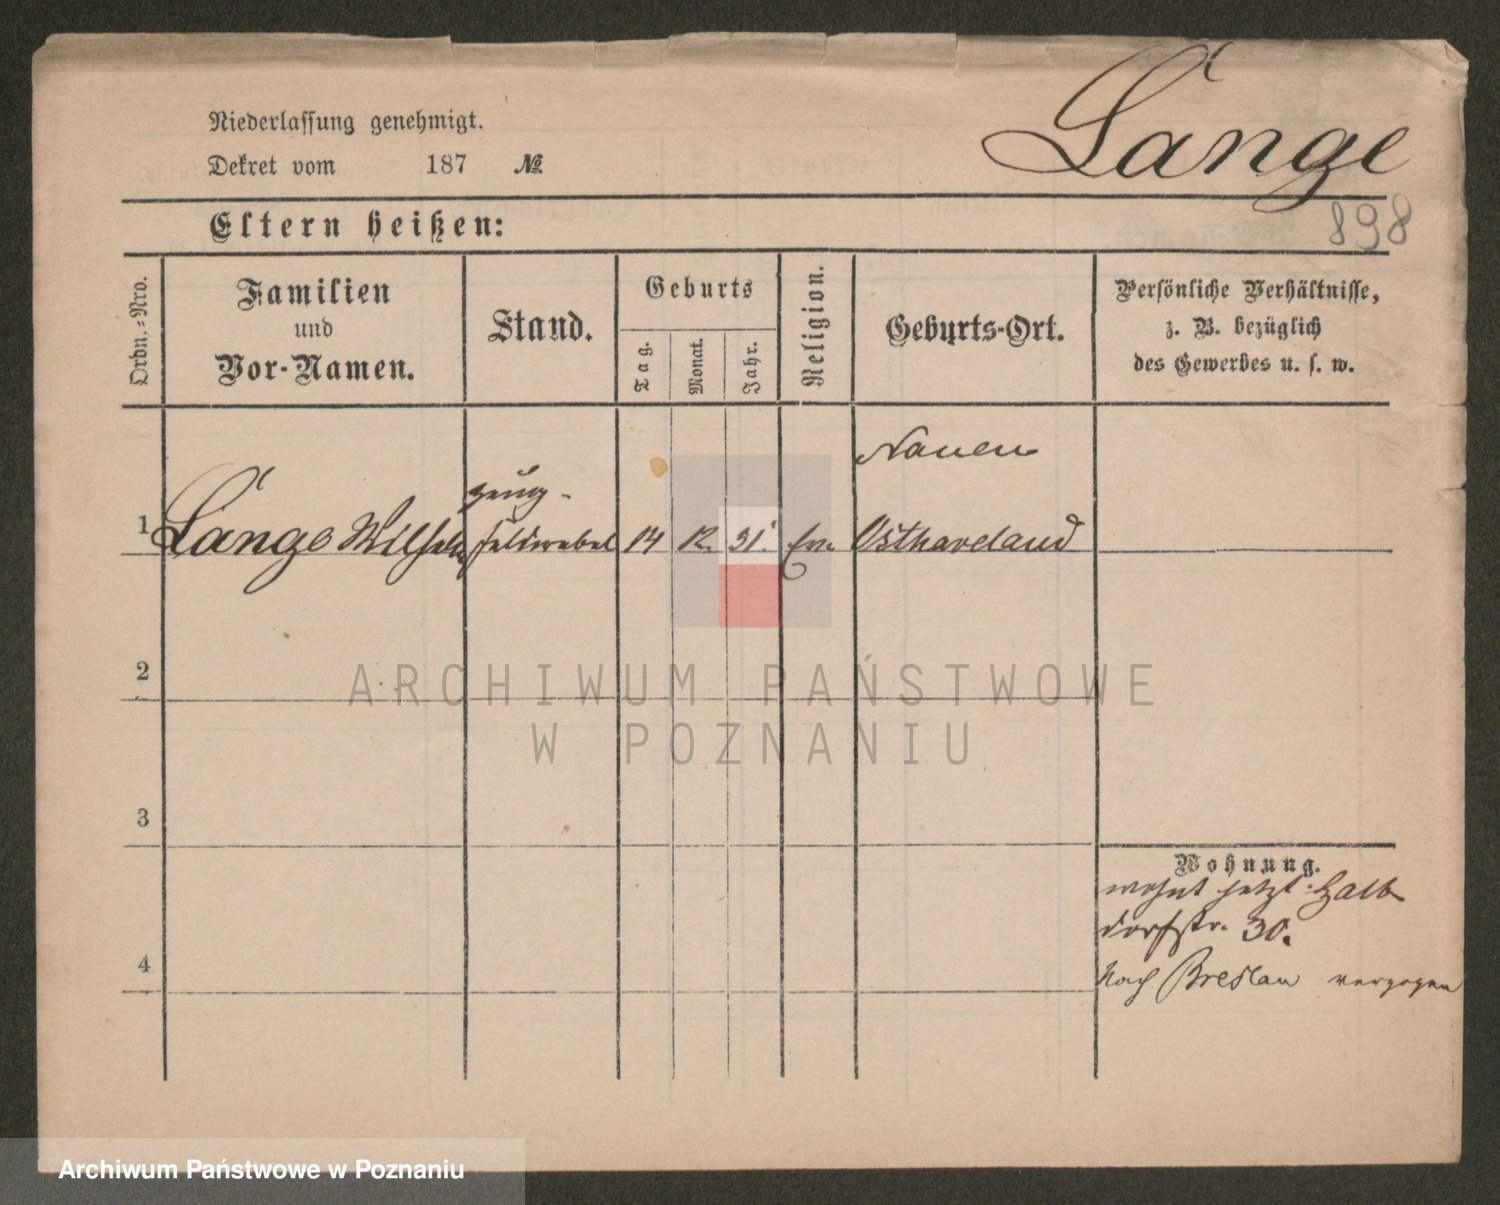 Lange
Niederlassung genehmigt.
Dekret vom 187 №
898
Eltern heißen:
Ordn.=Nro.
Familien
und
Vor-Namen.
Stand.
Geburts
Tag.
Monat.
Jahr.
Religion.
Geburts-Ort.
Persönliche Verhältnisse,
z. B. bezüglich
des Gewerbes u. s. w.
1
Lange Wilhelm
Zeug-
feldwebel
14
12.
31.
ev.
Nauen
Osthaveland
2
3
4
Wohnung.
wohnt jetzt: Halb
dorfstr. 30.
Nach Breslau verzogen
ARCHIWUM PAŃSTWOWE
W POZNANIU
Archiwum Państwowe w Poznaniu